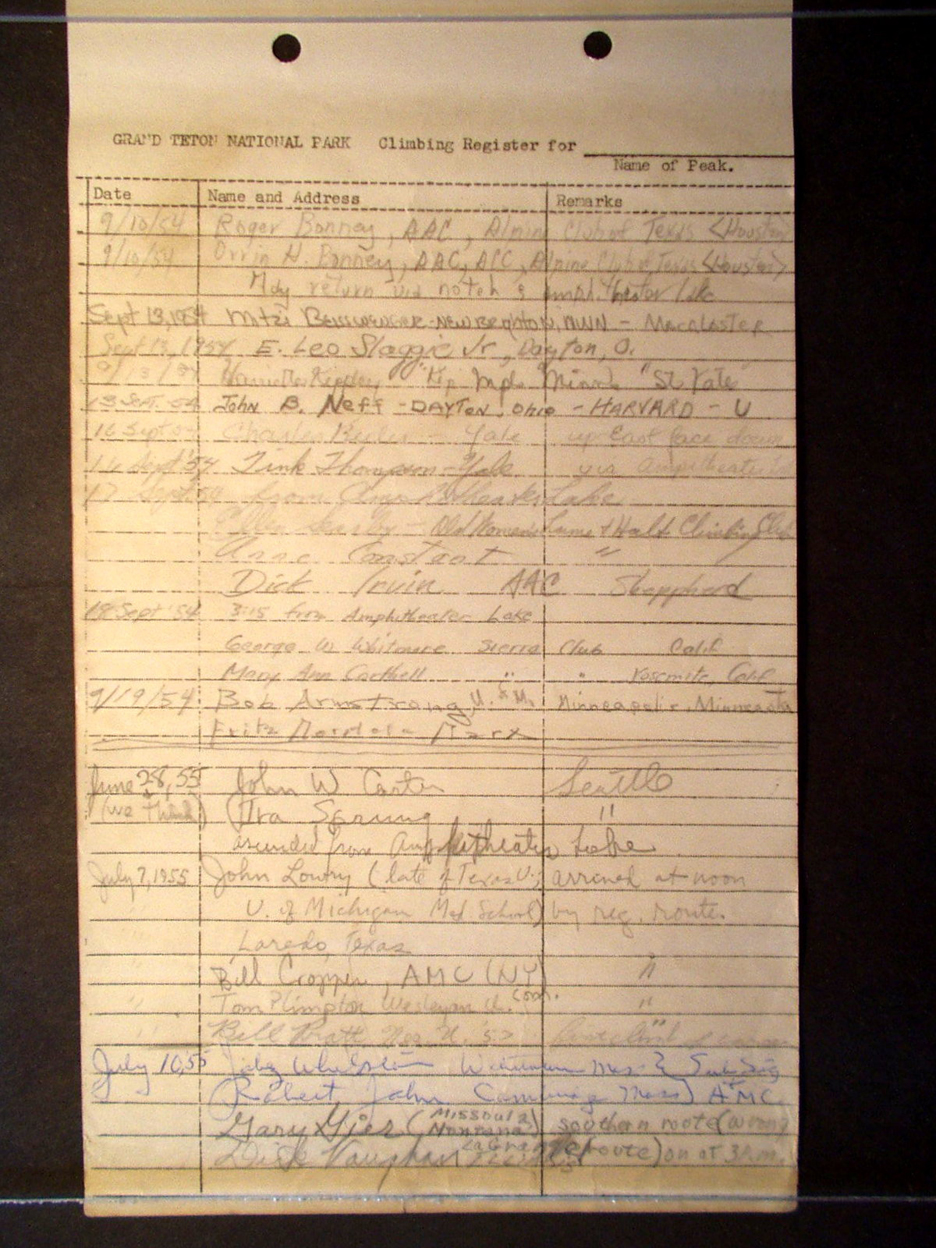 GRAND TETON NATIONAL PARK Climbing Register for
Name of Peak.
Date Name and Address Remarks
9/10/54 Roger Bonney, AAC, Alpine Club of Texas (Houston)
9/10/54 Orrin H. Bonney, AAC, ACC, Alpine Club of Texas (Houston)
May return via notch & amphitheater lake
Sept 13, 1954 Mitzi - New Brighton, MNN - Macalaster
Sept 13, 1954 E. Leo Slaggie Jr, Dayton, O.
9/13/54 "Kip" Mpls Minn "St Kate"
13 Sept. 54 John B. Neff - DAYTON, Ohio - HARVARD - U
16 Sept Charles - Yale up East face down
16 Sept '54 Tink Thompson - Yale via Ampitheater
17 Sept 54 from Amphitheater Lake
Ellen Searby - Old Womens Lame & Halt Climbing Club
Anne Constant "
Dick Irvin AAC Sheppherd
18 Sept '54 3:15 from Amphitheater Lake
George W. Whitmore Sierra Club Calif
Mary Ann " " Yosemite, Calif
9/19/54 Bob Armstrong, U. of M. Minneapolis, Minnesota
Fritz Marx
June 28, 55 John W Carter Seattle
(we think) Ira Spring "
ascended from Amphitheater Lake
July 7, 1955 John Lowry (late of Texas U. arrived at noon
U. of Michigan Med School) by reg. route.
Laredo, Texas
" Bill Cropper, AMC (NY) "
" Tom Plimpton Wesleyan U. Conn. "
" Bill
July 10, 55
Robert John Cambridge Mass AMC
Gary Gjer (Missoula Montana) southern route (wrong
Dick Vaughan route) on at 3 P.M.